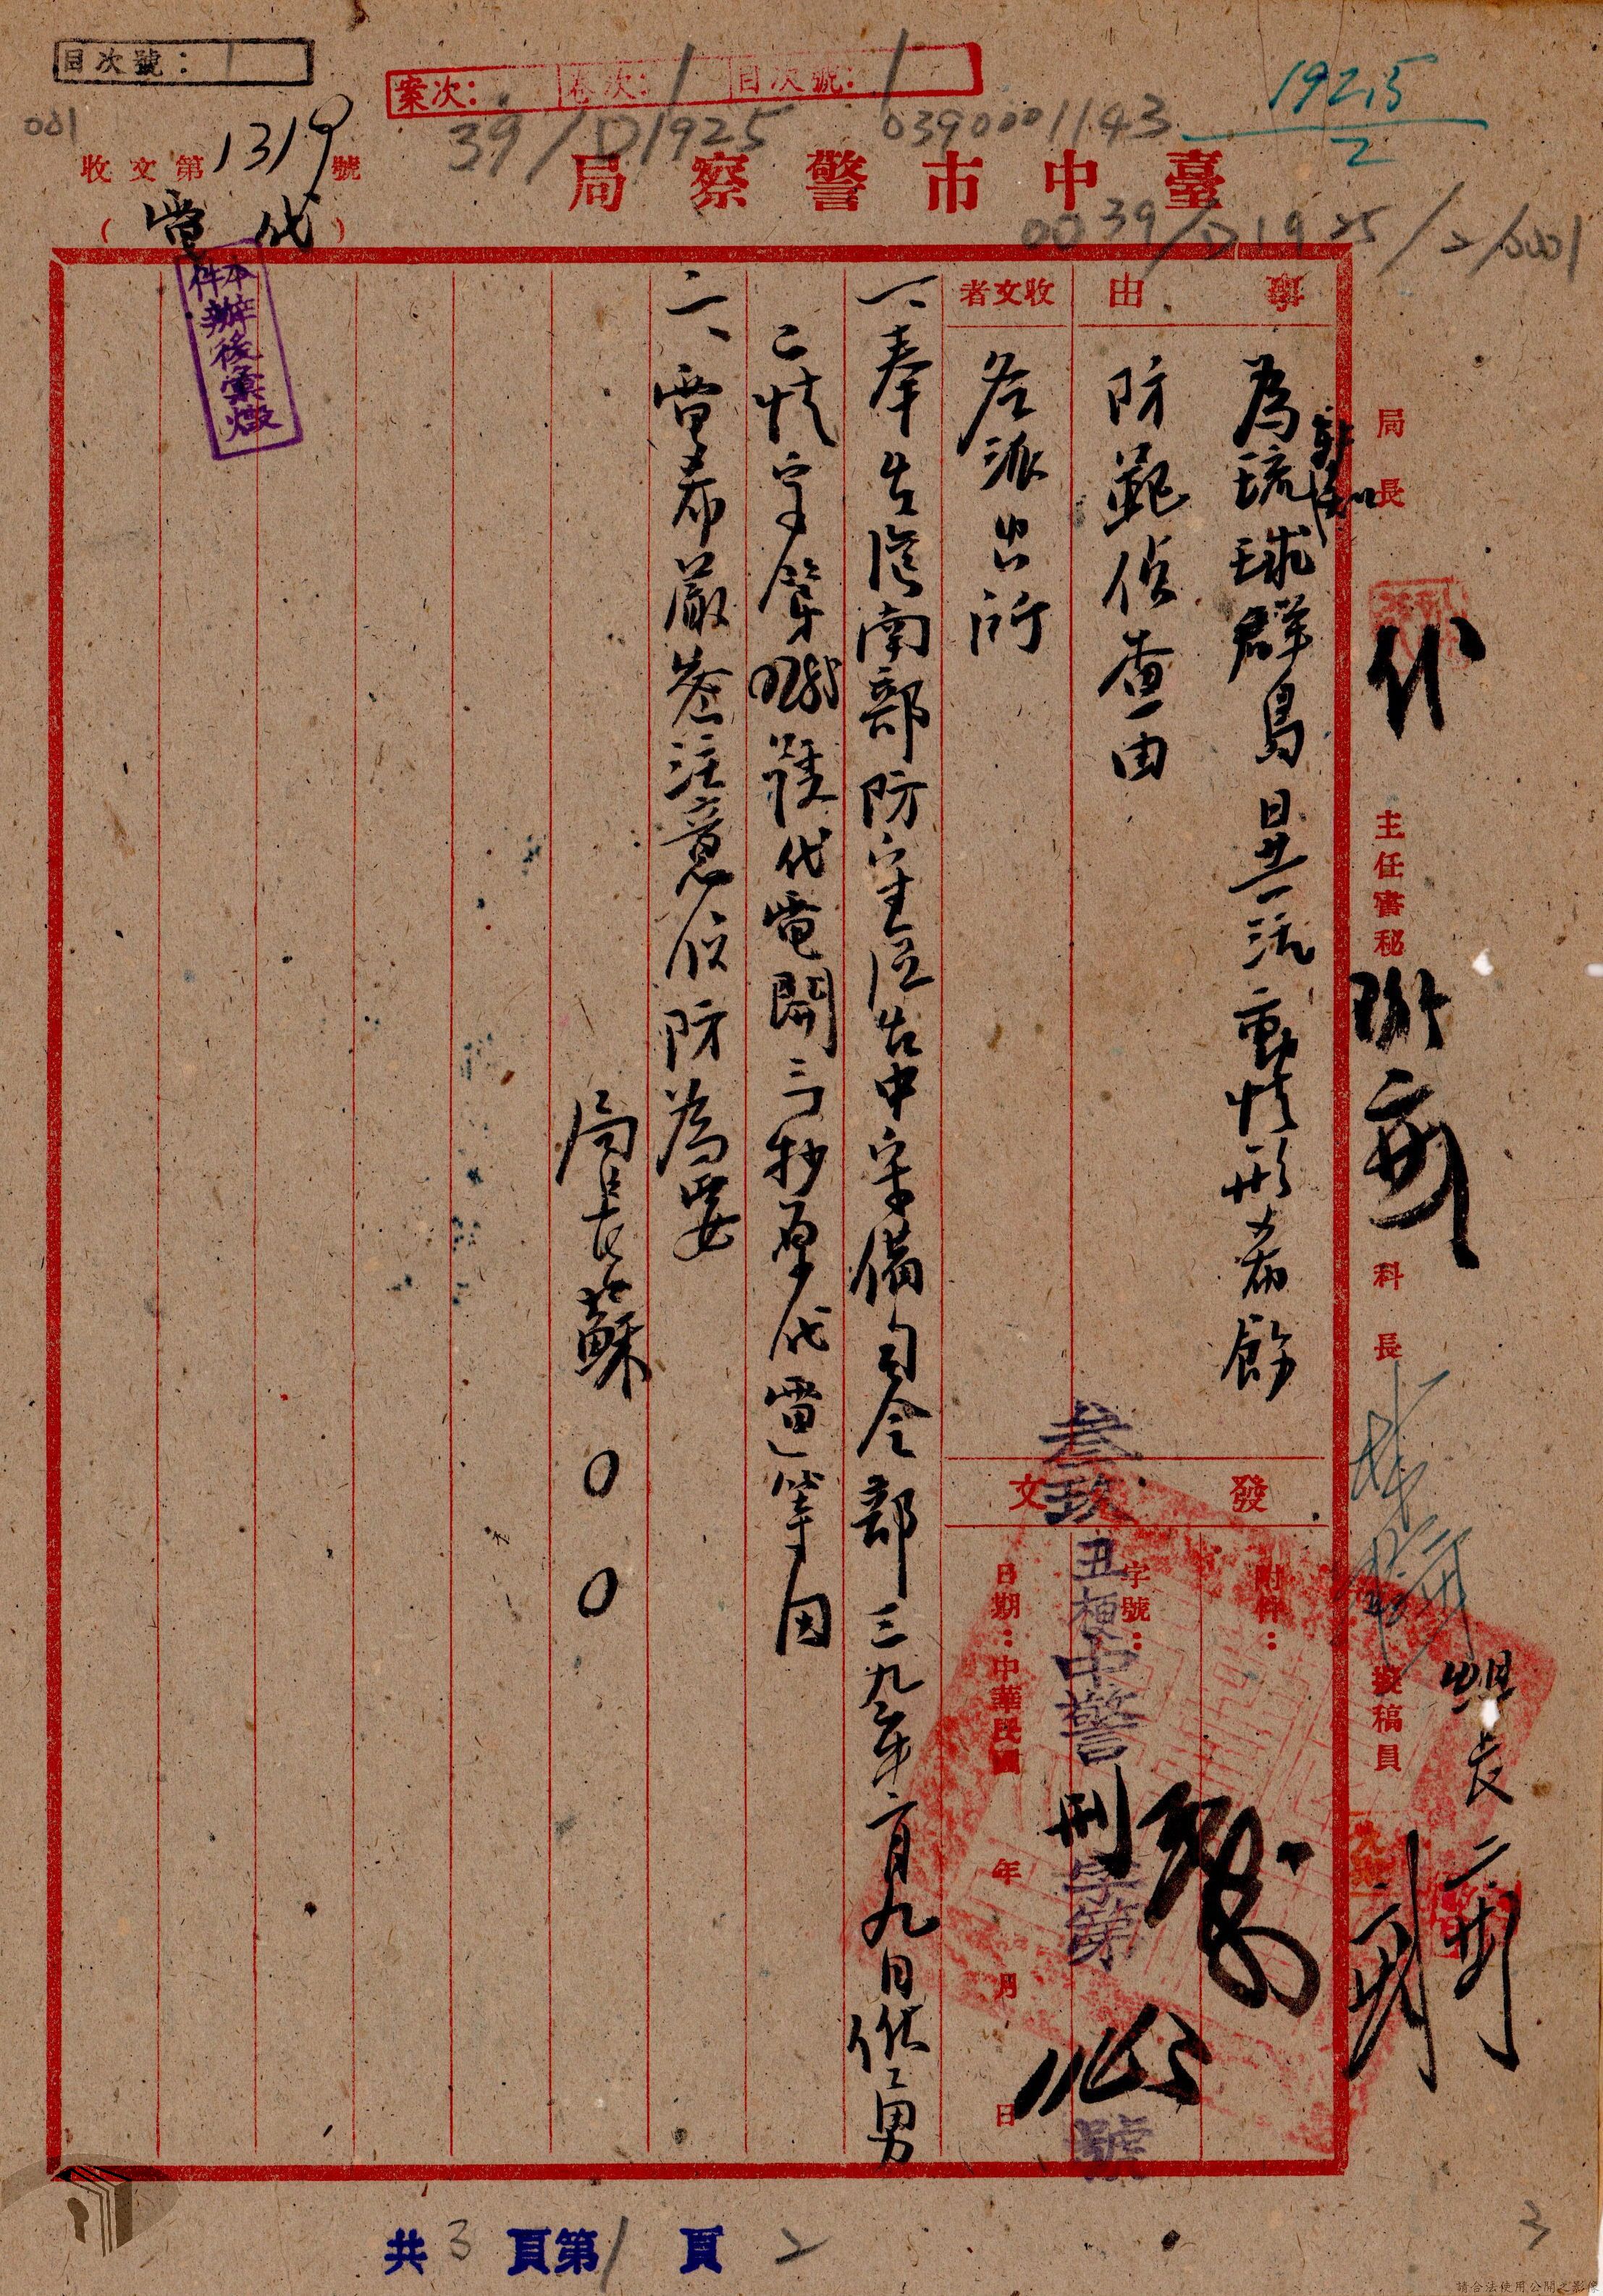 目次號：1
案次： 卷次：1 目次號：1
001
39/D1925
0390001143
1925
2
收文第1319號
（代電）
臺中市警察局
0039/D1925/2/0001
本件辦後彙燬
事由
為轉知琉球群島 流動情形希飭
防範偵查由
收文者
各派出所
一、奉台灣南部防守區台中守備司令部三九年二月九日
二情字第 號代電開「抄原代電」等因
二、電希嚴密注意偵防為要
局長蘇〇〇
發文
附件：
字號：
叁玖丑梗中警刑字第 號
日期：中華民國 年 月 日
局長
代
主任秘書
科長
擬稿員
組長
共3頁第1頁
2
3
請合法使用公開之影像